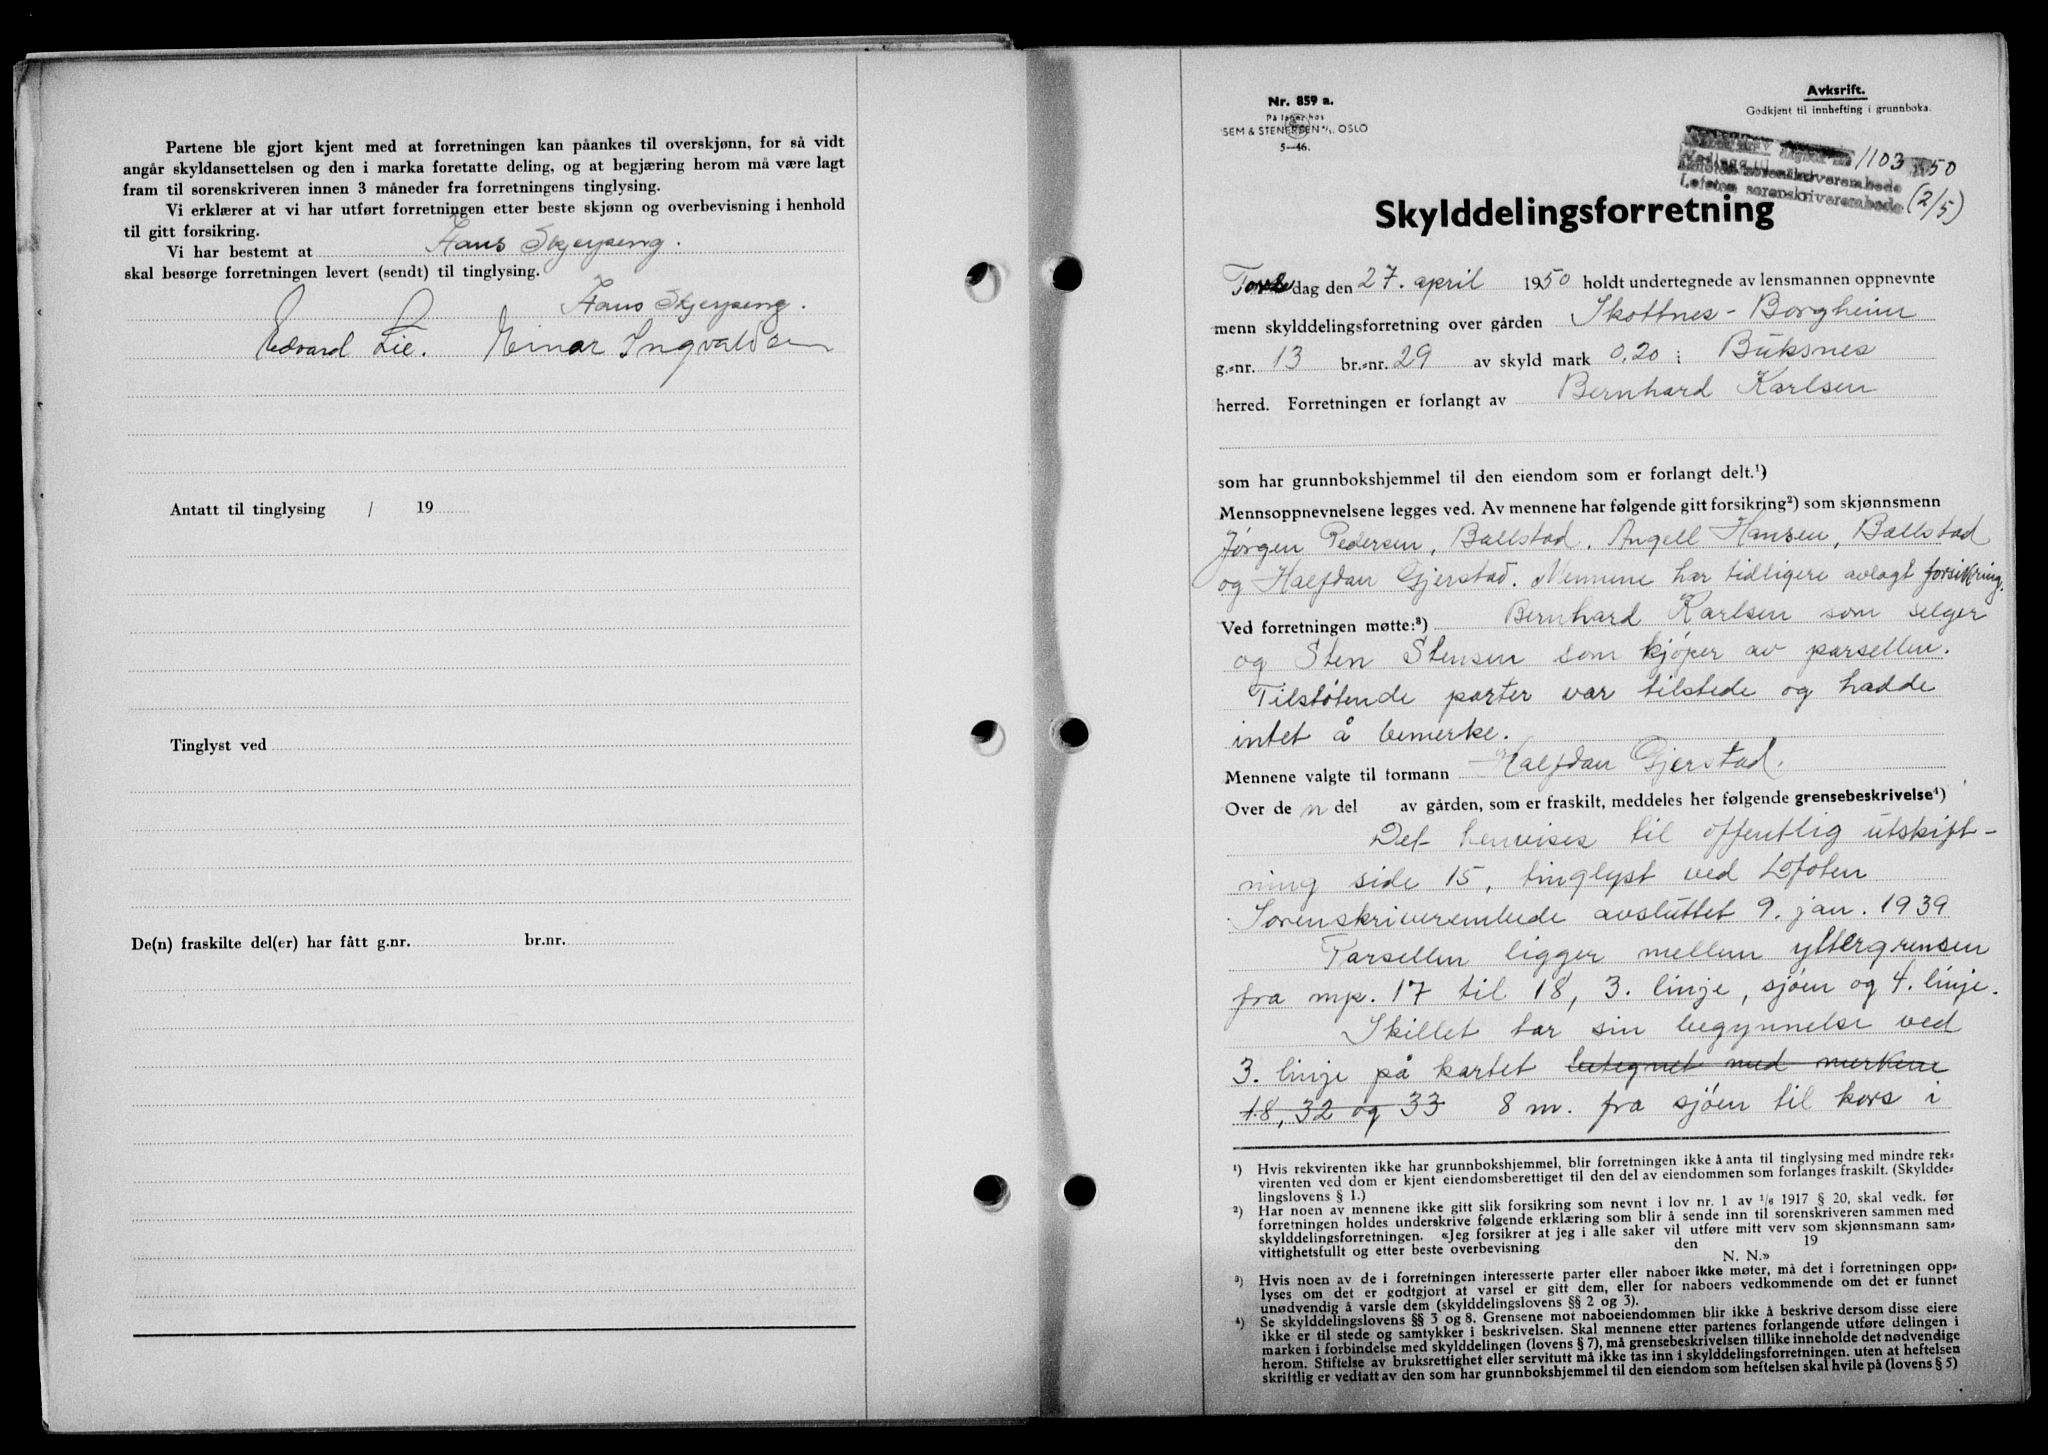 Partene ble gjort kjent med at forretningen kan påankes til overskjønn, for så vidt
angår skyldansettelsen og den i marka foretatte deling, og at begjæring herom må være lagt
fram til sorenskriveren innen 3 måneder fra forretningens tinglysing.
Vi erklærer at vi har utført forretningen etter beste skjønn og overbevisning i henhold
til gitt forsikring.
Vi har bestemt at Hans Skjerpeng.
skal besørge forretningen levert (sendt) til tinglysing.
Hans Skjerpeng.
Edvard Lie. Einar Ingvaldsen
Antatt til tinglysing / 19
Tinglyst ved
De(n) fraskilte del(er) har fått g.nr. br.nr.
Nr. 859 a.
På lager hos
SEM & STENERSEN A/S, OSLO
5—46.
Avksrift.
Godkjent til innhefting i grunnboka.
dagbok nr. 1103 1950
Vedlegg til
Lofoten sorenskriverembede
Lofoten sorenskriverembede (2/5)
Skylddelingsforretning
Torsdag den 27. april 1950 holdt undertegnede av lensmannen oppnevnte
menn skylddelingsforretning over gården Skottnes - Borgheim
g.=nr. 13 br.=nr. 29 av skyld mark 0,20 i Buksnes
herred. Forretningen er forlangt av Bernhard Karlsen
som har grunnbokshjemmel til den eiendom som er forlangt delt.¹)
Mennsoppnevnelsene legges ved. Av mennene har følgende gitt forsikring²) som skjønnsmenn
Jørgen Pedersen, Ballstad. Angell Hansen, Ballstad
og Halfdan Gjerstad. Mennene har tidligere avlagt forsikring.
Ved forretningen møtte:³) Bernhard Karlsen som selger
og Sten Stensen som kjøper av parsellen.
Tilstøtende parter var tilstede og hadde
intet å bemerke.
Mennene valgte til formann Halfdan Gjerstad.
Over de n del av gården, som er fraskilt, meddeles her følgende grensebeskrivelse⁴)
Det henvises til offentlig utskift-
ning side 15, tinglyst ved Lofoten
Sorenskriverembede avsluttet 9. jan. 1939
Parsellen ligger mellem yttergrensen
fra mp. 17 til 18, 3. linje, sjøen og 4. linje.
Skillet tar sin begynnelse ved
3. linje på kartet betegnet med merkene
18, 32 og 33 8 m. fra sjøen til kors i
¹) Hvis rekvirenten ikke har grunnbokshjemmel, blir forretningen ikke å anta til tinglysing med mindre rek=
virenten ved dom er kjent eiendomsberettiget til den del av eiendommen som forlanges fraskilt. (Skyldde=
lingslovens § 1.)
²) Har noen av mennene ikke gitt slik forsikring som nevnt i lov nr. 1 av 1/6 1917 § 20, skal vedk. før
forretningen holdes underskrive følgende erklæring som blir å sende inn til sorenskriveren sammen med
skylddelingsforretningen. «Jeg forsikrer at jeg i alle saker vil utføre mitt verv som skjønnsmann sam=
vittighetsfullt og etter beste overbevisning den 19
N. N.»
³) Hvis noen av de i forretningen interesserte parter eller naboer ikke møter, må det i forretningen opp=
lyses om det er godtgjort at varsel er gitt dem, eller for naboers vedkommende om det er funnet
unødvendig å varsle dem (skylddelingslovens §§ 2 og 3).
⁴) Se skylddelingslovens §§ 3 og 8. Grensene mot naboeiendommen blir ikke å beskrive dersom disse eiere
ikke er til stede og samtykker i beskrivelsen. Skal mennene etter partenes forlangende utføre delingen i
marken i forbindelse med skylddelingen (lovens § 7), må grensebeskrivelsen tillike inneholde det nødvendige
herom. Stiftelse av bruksrettighet eller servitutt må ikke tas inn i skylddelingsforretningen. uten at heftelsen
skriftlig er vedtatt av den som har grunnbokshjemmel til den eiendom som heftelsen skal hvile på (lovens § 5)